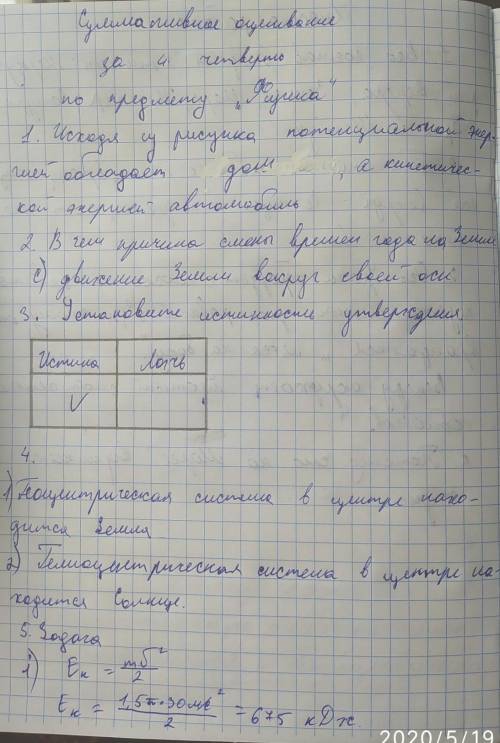 Суммативное оценивание
за 4 четверть
по предмету „Физика"
1. Исходя из рисунка потенциальной энер-
гией обладает дом, а кинетичес-
кой энергией автомобиль
2. В чем причина смены времен года на Земле
С) движение Земли вокруг своей оси.
3. Установите истинность утверждения
Истина Ложь
V
4.
1) Геоцентрическая система в центре нахо-
дится Земля
2) Гелиоцентрическая система в центре на-
ходится Солнце.
5. Задача
1) Eк = mϑ²/2
Eк = 1,5т·30м/с²/2 = 675 кДж.
2020/5/19